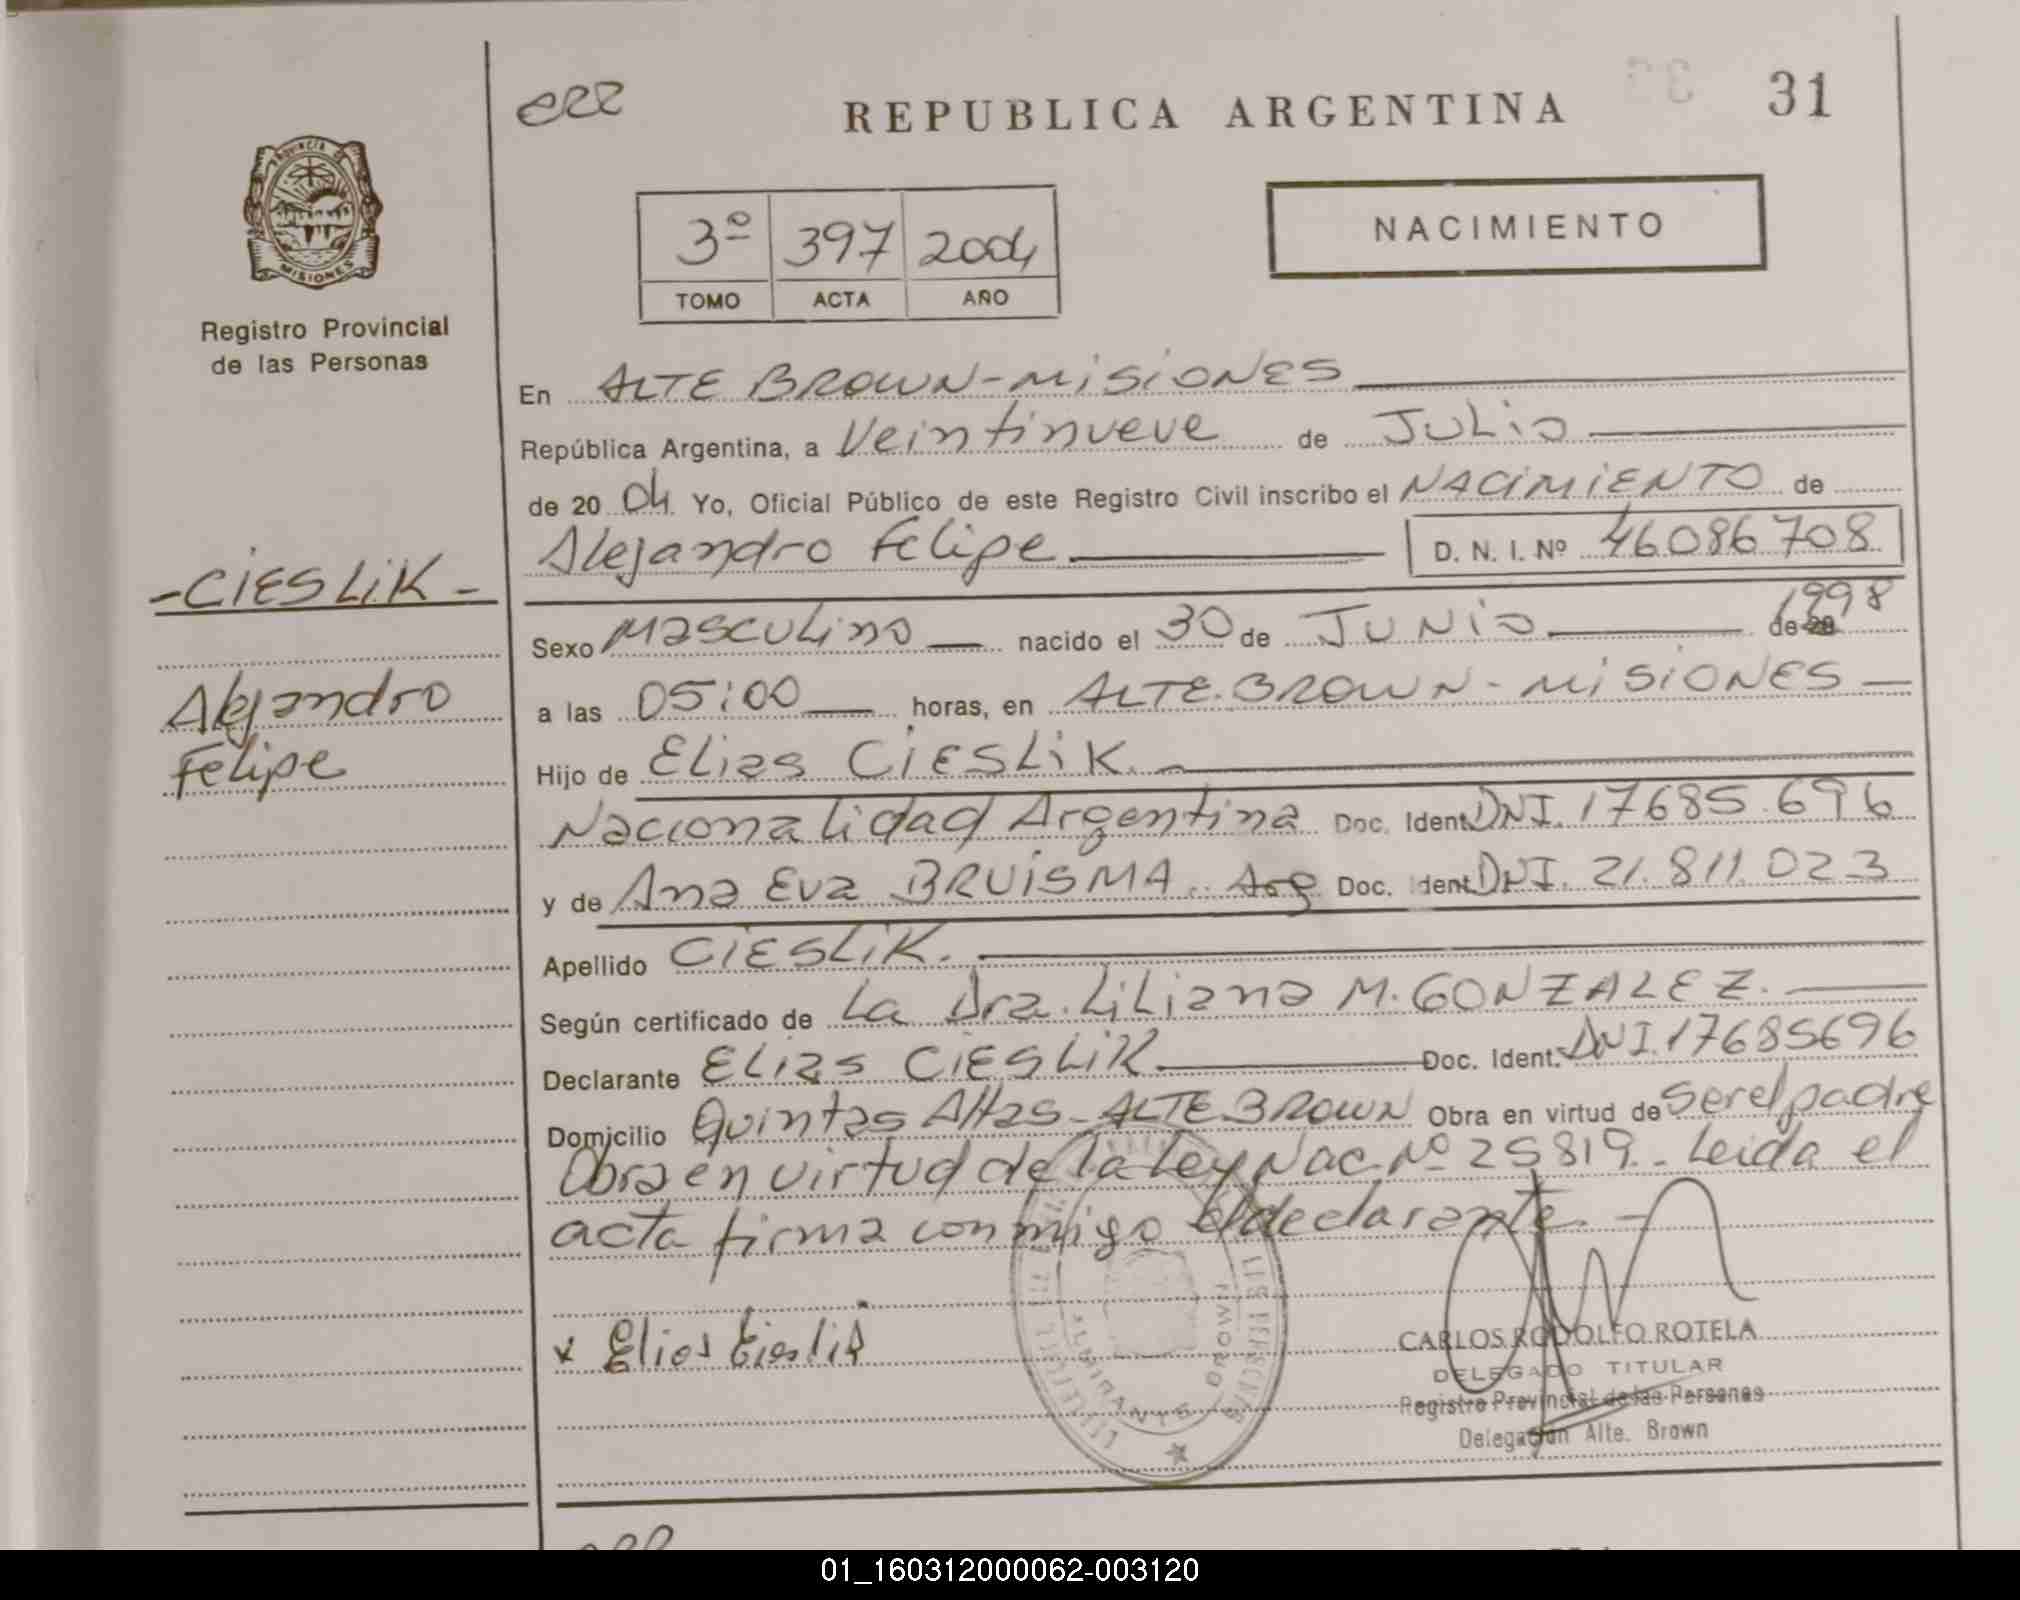 err
REPUBLICA ARGENTINA
31
PROVINCIA DE
MISIONES
Registro Provincial
de las Personas
3º 397 2004
TOMO ACTA AÑO
NACIMIENTO
En ALTE BROWN-MISIONES
República Argentina, a Veintinueve de JULIO
de 20 04 Yo, Oficial Público de este Registro Civil inscribo el NACIMIENTO de
Alejandro Felipe D. N. I. Nº 46086708
-CIESLIK-
Alejandro
Felipe
Sexo Masculino nacido el 30 de JUNIO de 20 1998
a las 05:00 horas, en ALTE. BROWN - MISIONES
Hijo de Elias CIESLIK.
Nacionalidad Argentina Doc. Ident. DNI. 17685.696
y de Ana Eva BRUISMA. Arg Doc. Ident. DNI. 21.811.023
Apellido CIESLIK.
Según certificado de La Dra. Liliana M. GONZALEZ.
Declarante Elias CIESLIK Doc. Ident. DNI. 17685696
Domicilio Quintas Altas - ALTE BROWN Obra en virtud de ser el padre
Obra en virtud de la Ley Nac. Nº 25819.- Leida el
acta firma conmigo el declarante. -
x Elias Cieslik
ALMIRANTE BROWN
CARLOS RODOLFO ROTELA
DELEGADO TITULAR
Registro Provincial de las Personas
Delegación Alte. Brown
01_160312000062-003120